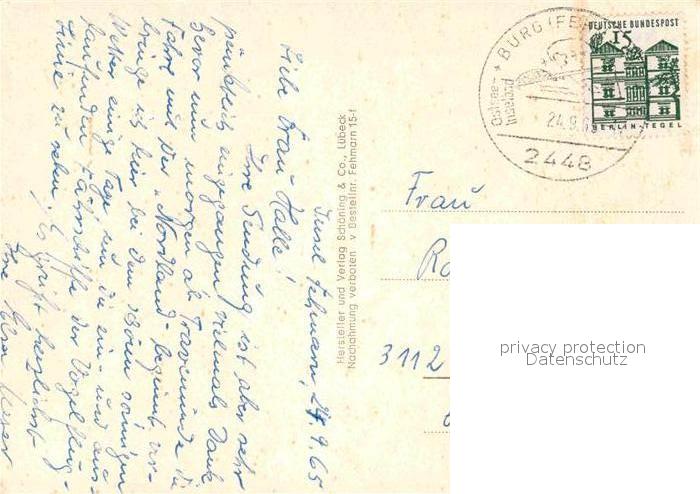 Insel Fehmarn, 24.9.65
Liebe Frau Halle!
Ihre Sendung ist aber sehr
pünktlich eingegangen vielmals Dank
Bevor nun morgen ab Travemünde die
Fahrt mit der "Nordland" beginnt ver-
bringe ich hier bei dem schönen sonnigen
Wetter einige Tage um die ein- und aus-
laufenden Fährschiffe der Vogelflug-
linie zu sehen. Es grüßt herzlichst
Ihre
Hersteller und Verlag Schöning & Co., Lübeck
Nachahmung verboten v Bestellnr. Fehmarn 15-f
BURG (FEHMARN)
Ostsee-
insel
24.9.
2448
DEUTSCHE BUNDESPOST
15
BERLIN-TEGEL
Frau
3112
privacy protection
Datenschutz